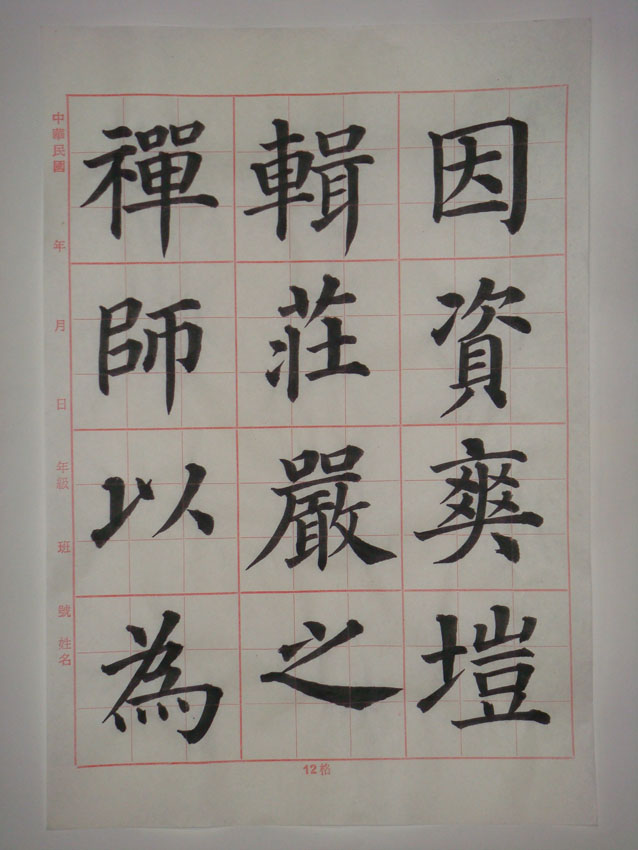 因資爽塏
輯莊嚴之
禪師以為
中華民國 年 月 日 年級 班 號 姓名
12格